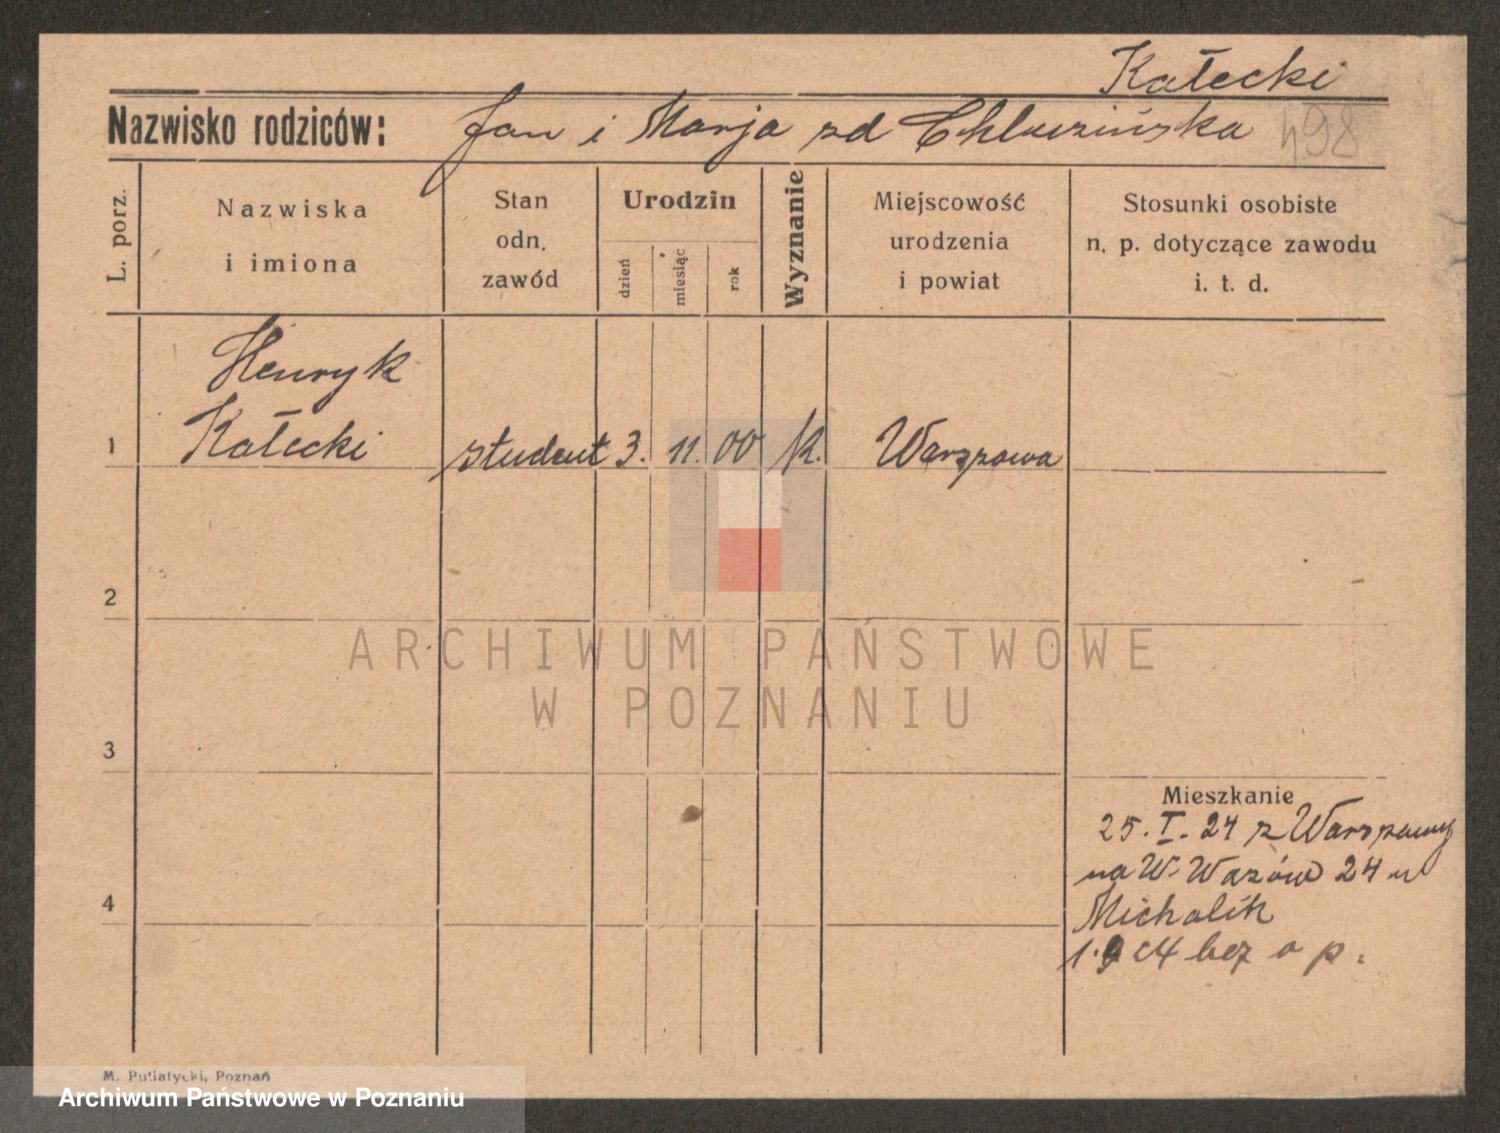 Kałecki
Nazwisko rodziców: Jan i Marja zd Chluzińska
498
L. porz.
Nazwiska
i imiona
Stan
odn.
zawód
Urodzin
dzień
miesiąc
rok
Wyznanie
Miejscowość
urodzenia
i powiat
Stosunki osobiste
n. p. dotyczące zawodu
i. t. d.
Henryk
1 Kałecki student 3. 11. 00 k. Warszawa
2
ARCHIWUM PAŃSTWOWE
W POZNANIU
3
Mieszkanie
25. I. 24 z Warszawy
na W. Wazów 24 u
4 Michalik
1.9 24 bez o p.
M. Putiatycki, Poznań
Archiwum Państwowe w Poznaniu